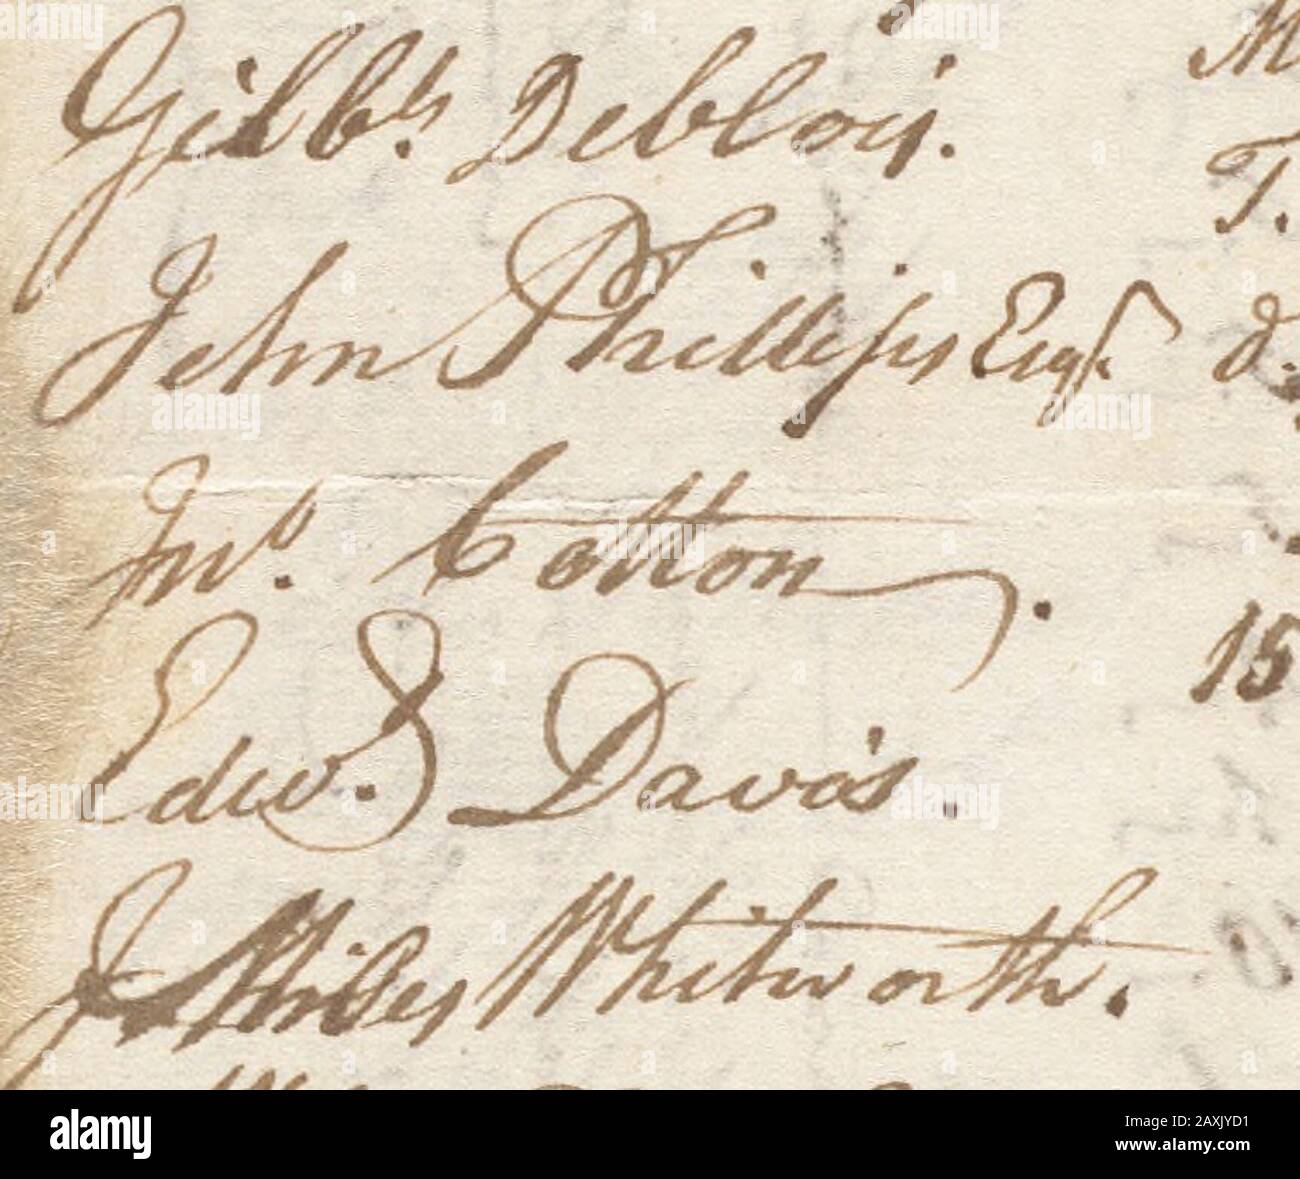 Gilb.t Deblois. M
T.
John Phillips Esqr. d.
Jno. Cotton.
Edwd. Davis. 15
Miles Whitworth.
alamy
Image ID: 2AXJYD1
www.alamy.com